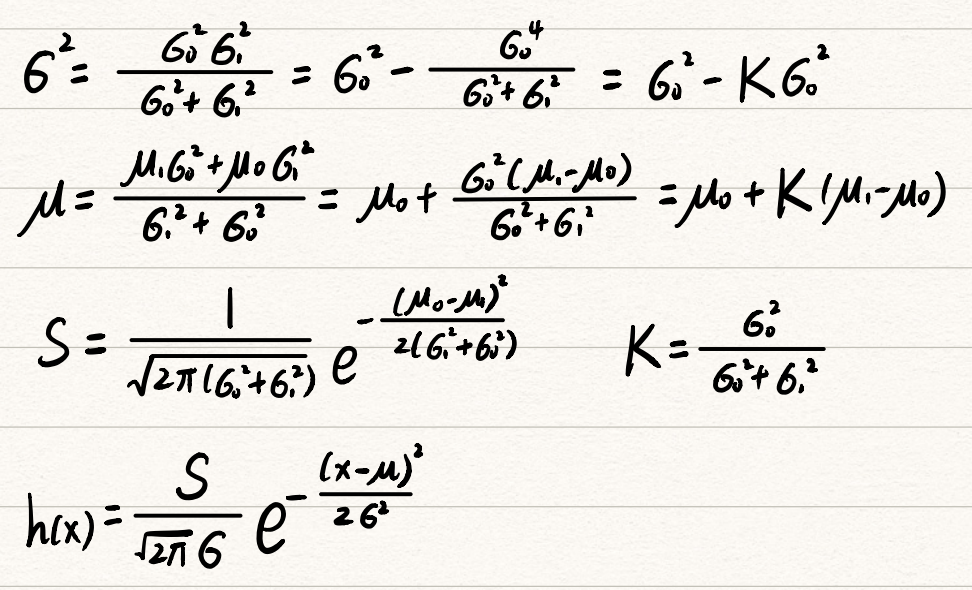 σ² = σ₀²σ₁² / (σ₀² + σ₁²) = σ₀² - σ₀⁴ / (σ₀² + σ₁²) = σ₀² - Kσ₀²
μ = (μ₁σ₀² + μ₀σ₁²) / (σ₁² + σ₀²) = μ₀ + σ₀²(μ₁-μ₀) / (σ₀² + σ₁²) = μ₀ + K(μ₁-μ₀)
S = 1 / √(2π(σ₀²+σ₁²)) e^(-(μ₀-μ₁)² / 2(σ₁²+σ₀²)) K = σ₀² / (σ₀² + σ₁²)
h(x) = S / (√(2π) σ) e^(-(x-μ)² / 2σ²)